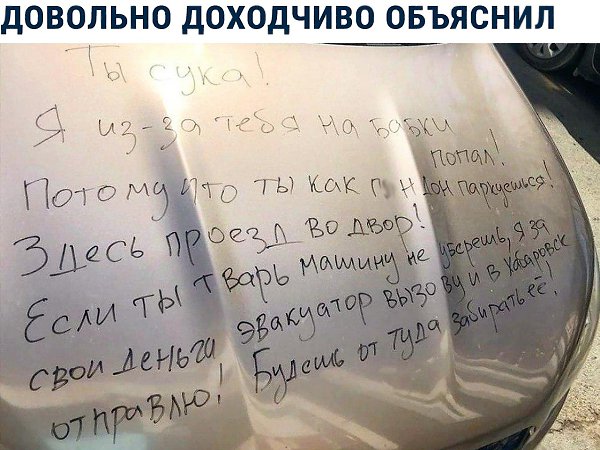 ДОВОЛЬНО ДОХОДЧИВО ОБЪЯСНИЛ
Ты сука!
Я из-за тебя на бабки
попал!
Потому что ты как г н дон паркуешься!
Здесь проезд во двор!
Если ты тварь машину не уберешь, я за
свои деньги эвакуатор вызову и в Хабаровск
отправлю! Будешь от туда забирать её!